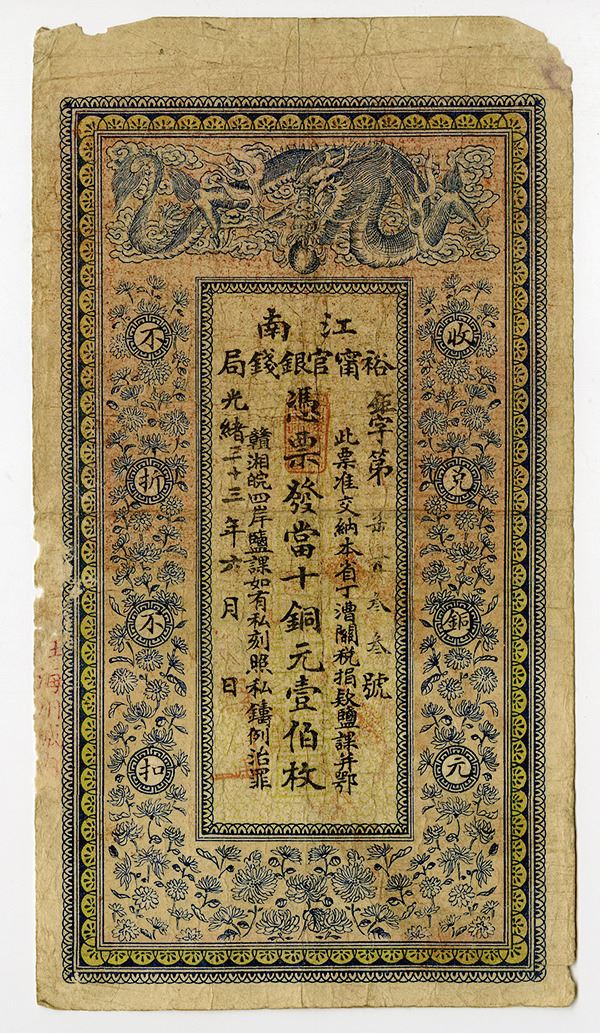 江南
裕甯官銀錢局
收兌銅元
不折不扣
字第 叁叁號
此票准交納本省丁漕關稅捐款鹽課并鄂
憑票發當十銅元壹佰枚
贛湘皖四岸鹽課如有私刻照私鑄例治罪
光緒三十三年六月 日